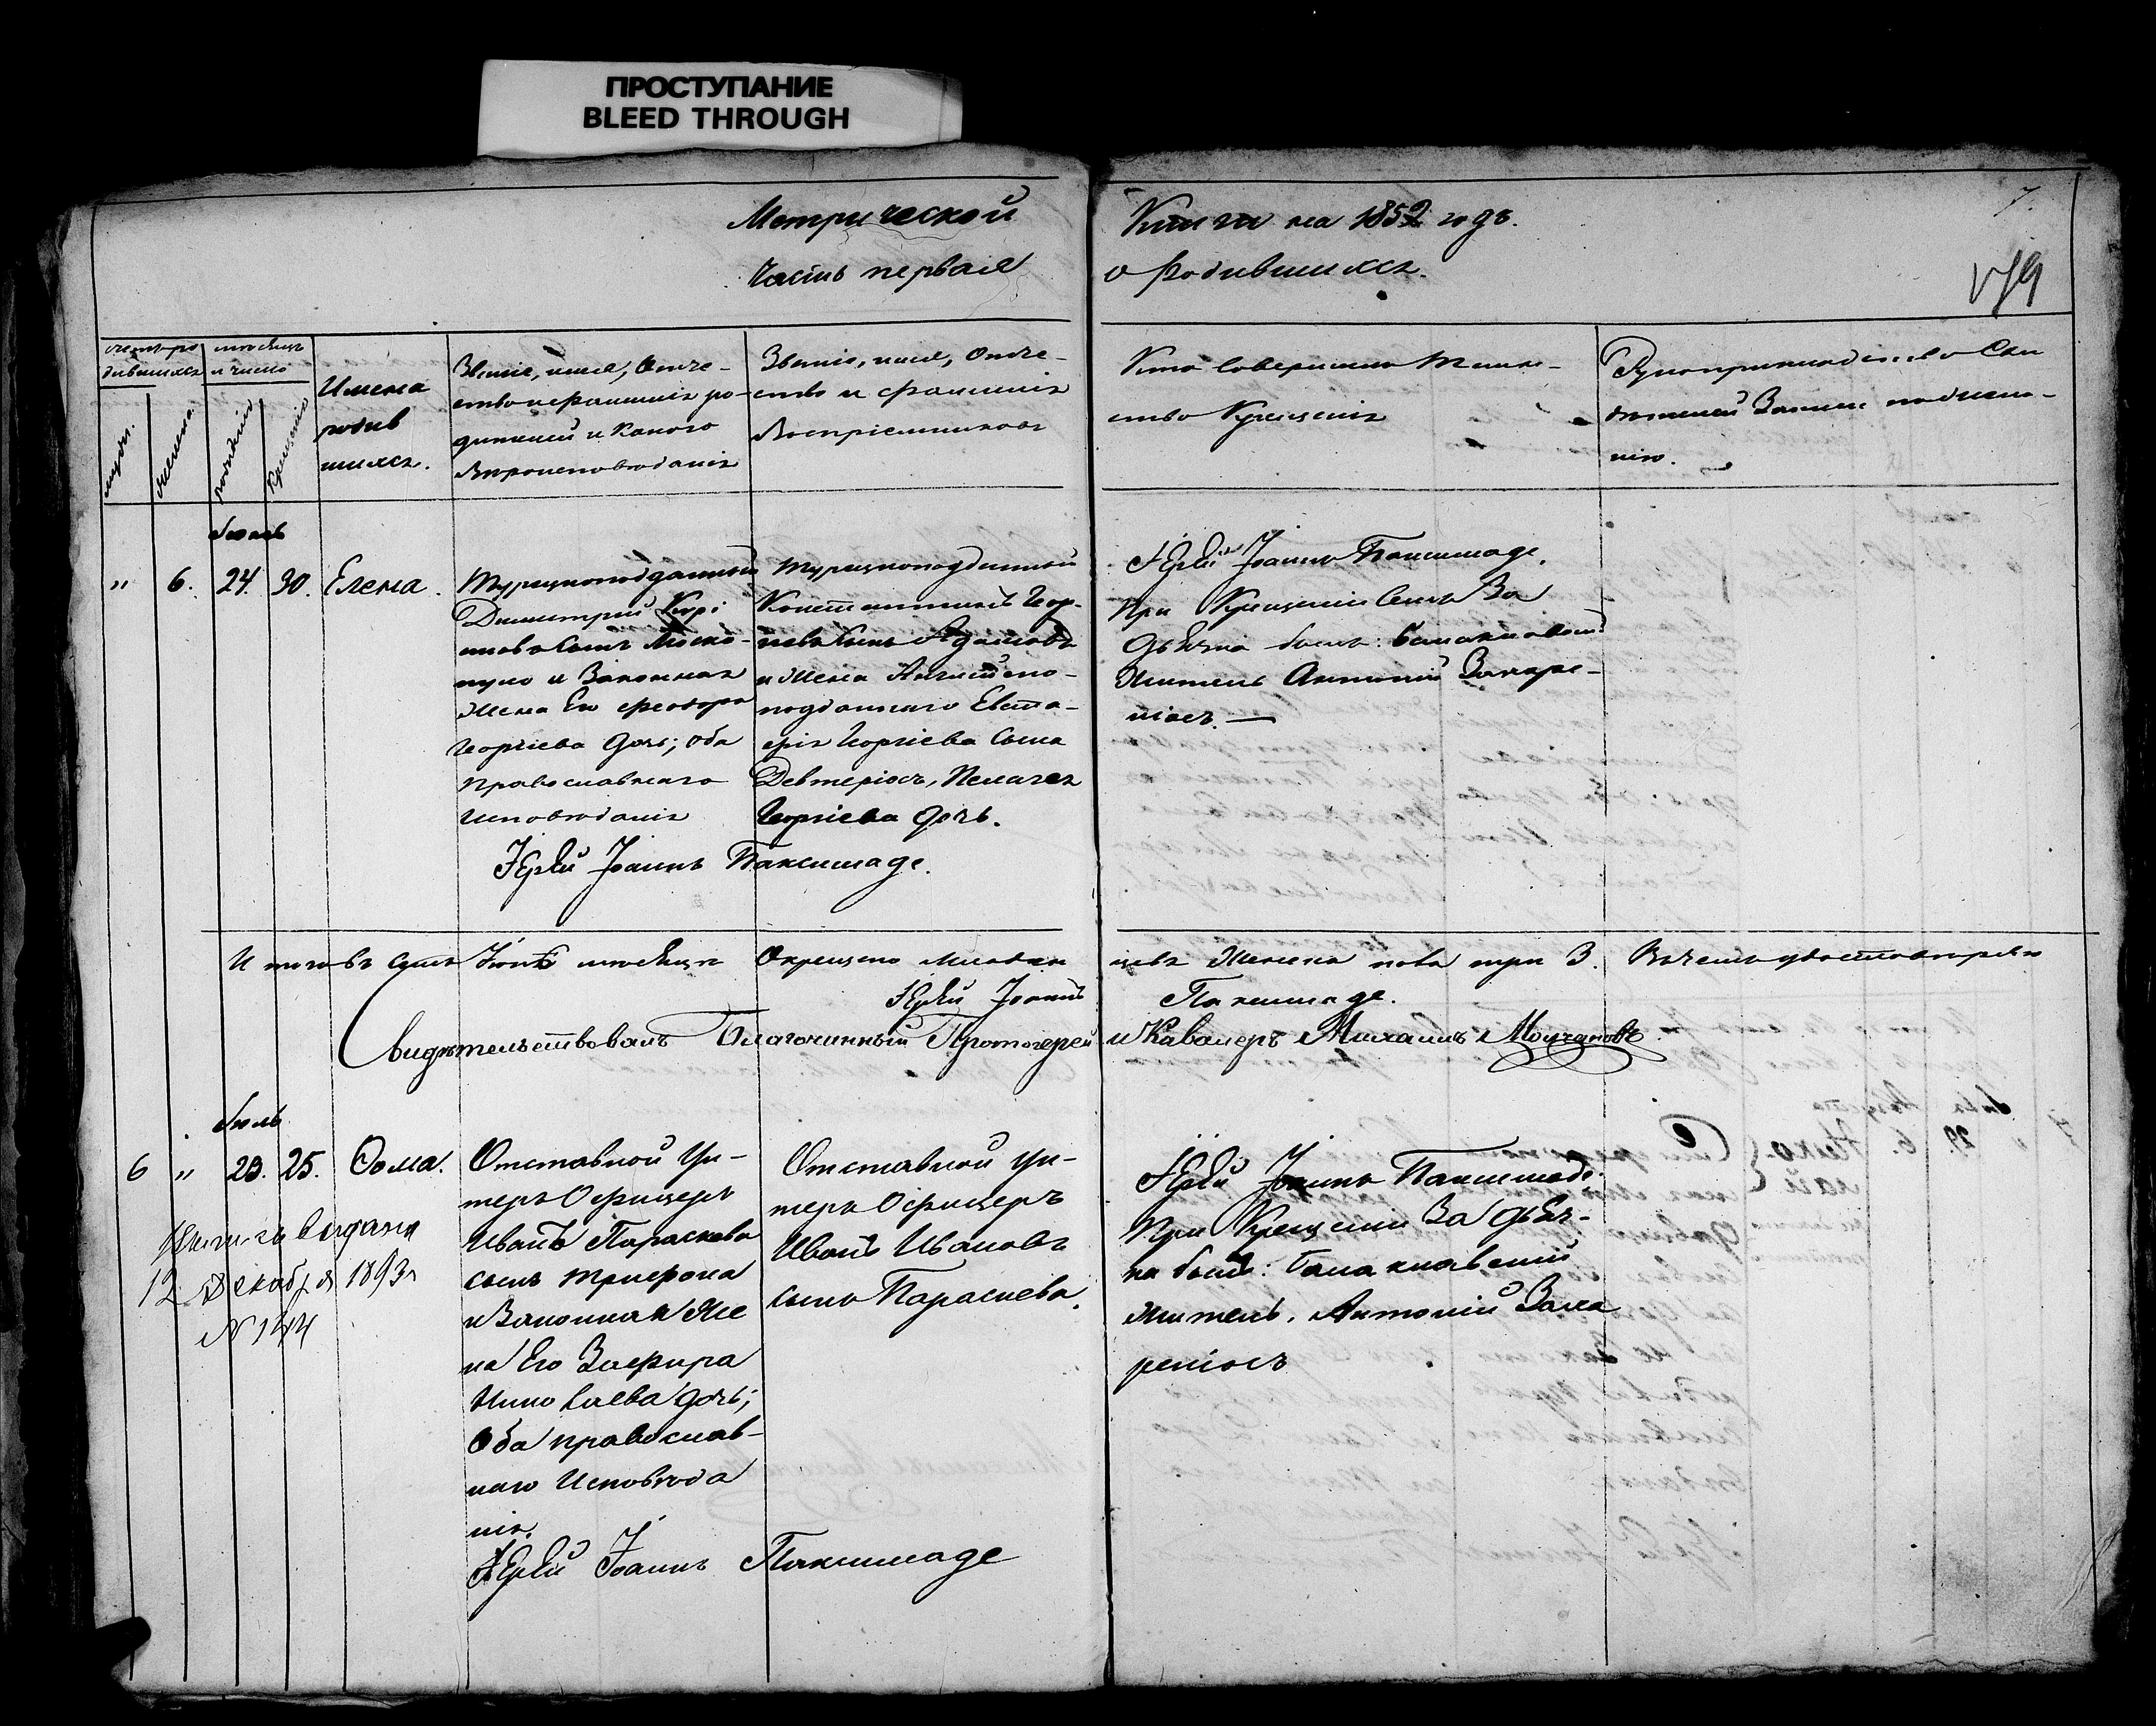 ПРОСТУПАНИЕ
BLEED THROUGH
Метрической Книги на 1852 годъ.
Часть первая о Родившихся.
7.
Счетъ ро-
дившихся
мѣсяцъ
и число
мужи.
женска.
рожденія
крещенія
Имена
родив
шихся.
Званіе, имя, Отче-
ство и фамилія ро-
дителей и какого
вѣроисповѣданія
Званіе, имя, Отче-
ство и фамилія
Воспріемниковъ
Кто совершилъ Таин-
ство Крещенія
Рукоприкладство Сви
дѣтелей Записи по желa-
нію.
Іюнь
" 6. 24. 30. Елена.
Турецкоподданный
Димитрій
сынъ Моско-
пуло и Законная
Жена Его Феодора
Георгіева дочь; оба
Православнаго
Исповѣданія
Турецкоподданный
Константинъ Геор-
гіевъ сынъ Адамовъ
и Жена Англійско-
подданнаго Евста-
фія Георгіева Сына
Девтеріосъ, Пелагея
Георгіева дочь.
Іерѣй Іоаннъ Паксимаде.
При Крещеніи Семъ За
дьячка былъ: балаклавскій
Житель Антоній Захаре-
ніосъ. —
Іерѣй Іоаннъ Паксимаде.
Итого въ семъ Іюнѣ мѣсяцѣ Окрещено младен цевъ Женска пола три 3. Въ чемъ удостовѣряю
Іерѣй Іоаннъ Паксимаде.
Свидѣтельствовалъ Благочинный Протоіерей и Кавалеръ Михаилъ Молчановъ.
Іюль
6 " 23. 25. Ѳома.
Отставной Ун-
теръ Офицеръ
Иванъ Параскева
сынъ Трифона
и Законная Же
на Его Замфира
Николаева дочь;
Оба православ-
наго Исповѣда
нія.
Отставной Ун-
теръ Офицеръ
Иванъ Ивановъ
сынъ Параскева.
Іерѣй Іоаннъ Паксимаде.
При Крещеніи За дьяч-
ка былъ: балаклавскій
житель, Антоній Заха
реніосъ
выдана
12 Декабря 1893г
№ 144
Іерѣй Іоаннъ Паксимаде